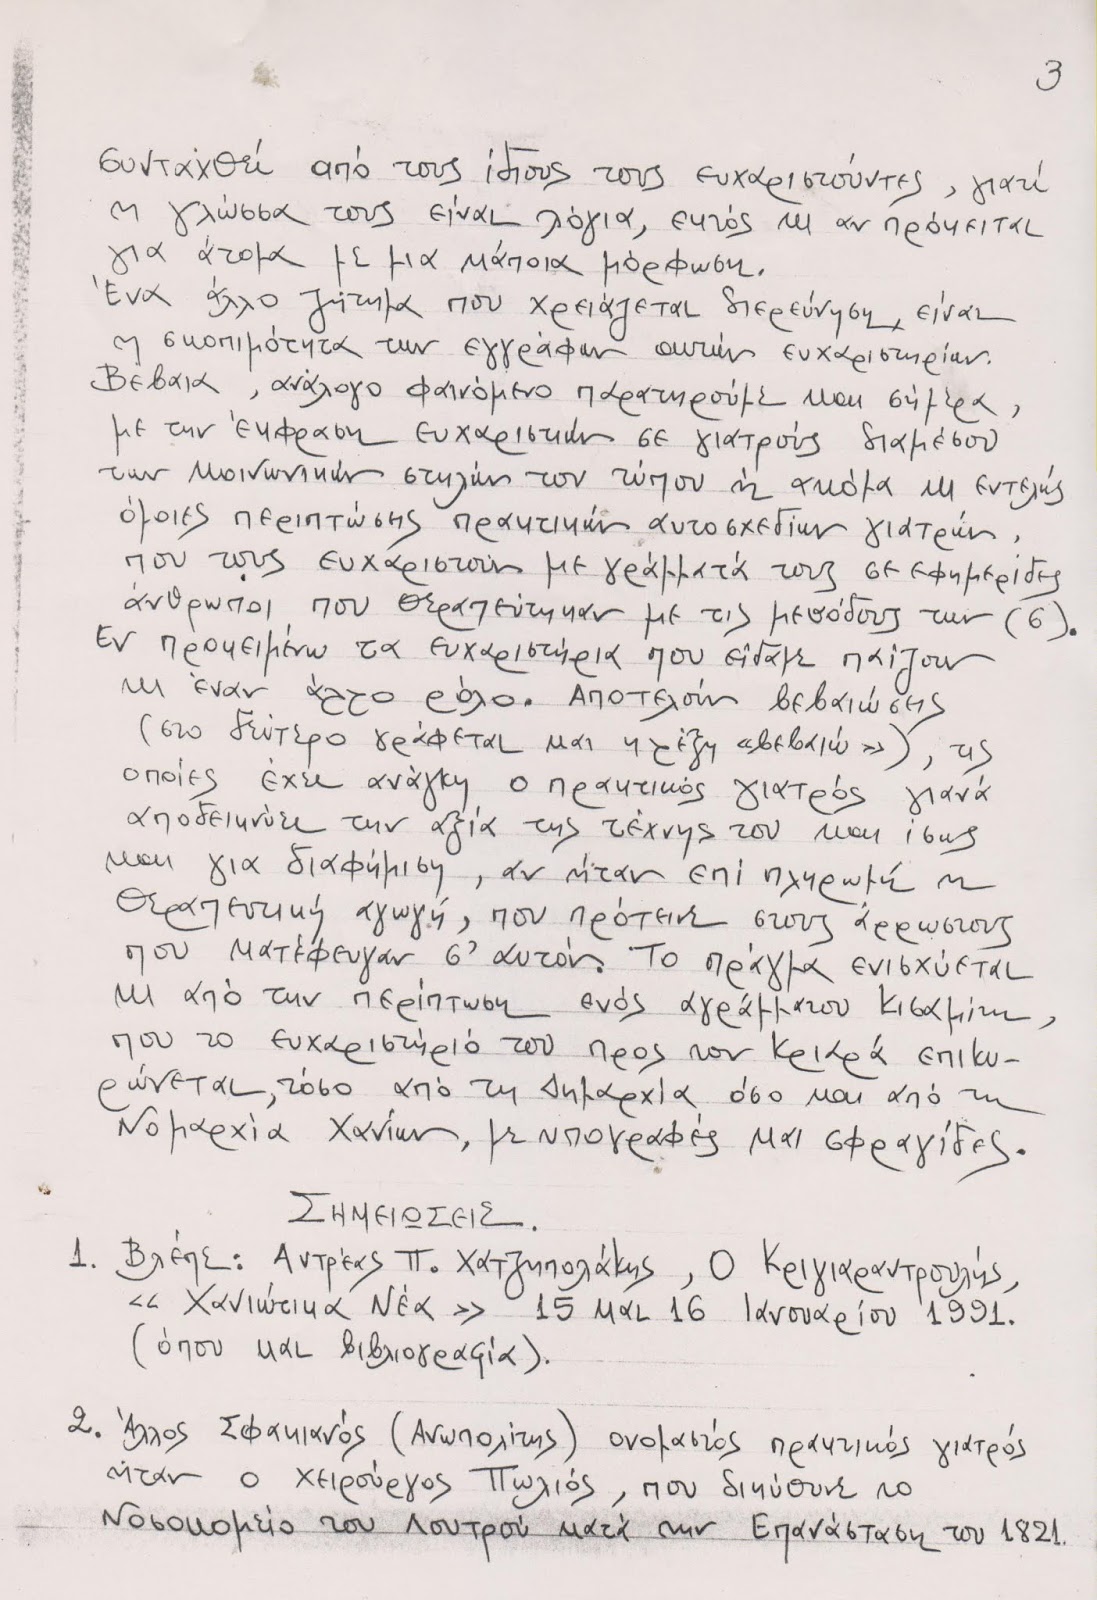 3
συνταχθεί από τους ίδιους τους ευχαριστούντες, γιατί
η γλώσσα τους είναι λόγια, εκτός κι αν πρόκειται
για άτομα με μια κάποια μόρφωση.
Ένα άλλο ζήτημα που χρειάζεται διερεύνηση, είναι
η σκοπιμότητα των εγγράφων αυτών ευχαριστηρίων.
Βέβαια, ανάλογο φαινόμενο παρατηρούμε και σήμερα,
με την έκφραση ευχαριστιών σε γιατρούς διαμέσου
των κοινωνικών στηλών του τύπου ή ακόμα κι εντελώς
όμοιες περιπτώσεις πρακτικών αυτοσχεδίων γιατρών,
που τους ευχαριστούν με γράμματά τους σε εφημερίδες
άνθρωποι που θεραπεύτηκαν με τις μεθόδους των (6).
Εν προκειμένω τα ευχαριστήρια που είδαμε παίζουν
κι έναν άλλο ρόλο. Αποτελούν βεβαιώσεις
(στο δεύτερο γράφεται και η λέξη «βεβαιώ»), τις
οποίες έχει ανάγκη ο πρακτικός γιατρός γιανά
αποδεικνύει την αξία της τέχνης του και ίσως
και για διαφήμιση, αν ήταν επί πληρωμή η
θεραπευτική αγωγή, που πρότεινε στους άρρωστους
που κατέφευγαν σ' αυτόν. Το πράγμα ενισχύεται
κι από την περίπτωση ενός αγράμματου Κισαμίτη,
που το ευχαριστήριό του προς τον Κριαρά επικυ-
ρώνεται, τόσο από τη Δημαρχία όσο και από τη
Νομαρχία Χανίων, με υπογραφές και σφραγίδες.
ΣΗΜΕΙΩΣΕΙΣ.
1. Βλέπε: Αντρέας Π. Χατζηπολάκης, Ο Κριγιαραντρουλής,
« Χανιώτικα Νέα » 15 και 16 Ιανουαρίου 1991.
(όπου και βιβλιογραφία).
2. Άλλος Σφακιανός (Ανωπολίτης) ονομαστός πρακτικός γιατρός
ήταν ο χειρούργος Πωλιός, που διηύθυνε το
Νοσοκομείο του Λουτρού κατά την Επανάσταση του 1821.